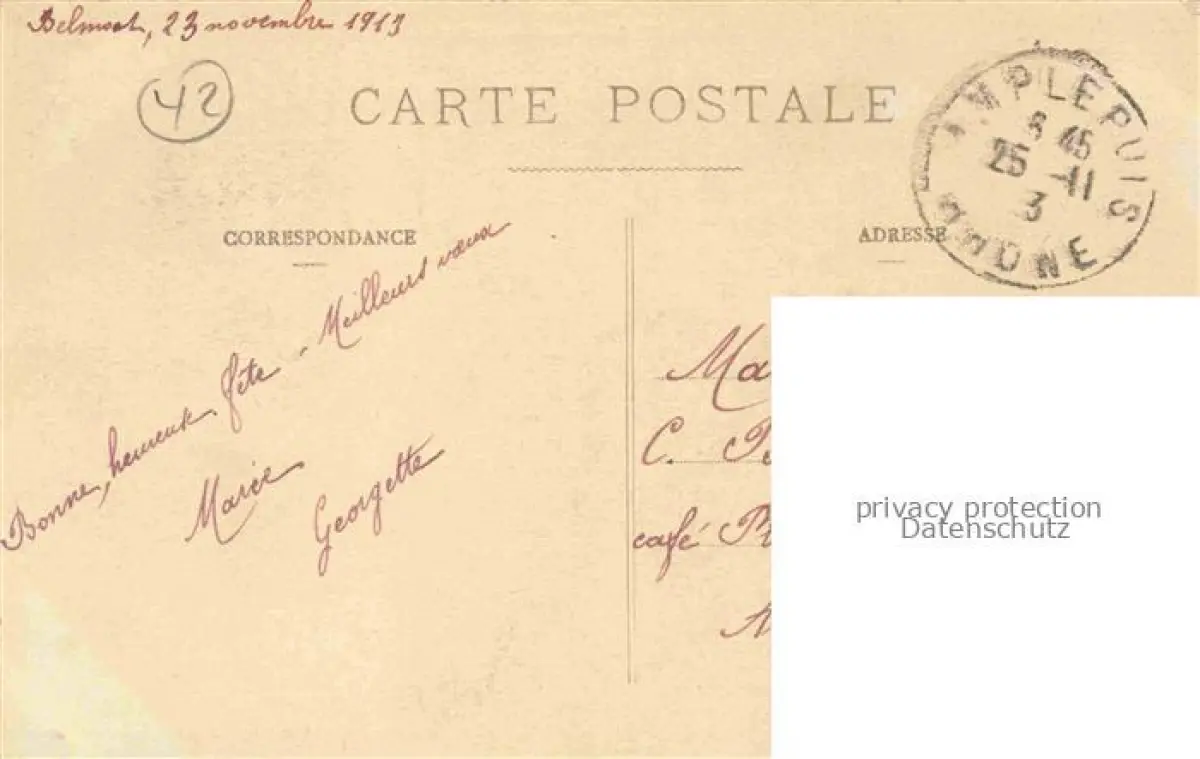 Belmont, 23 novembre 1913
42
CARTE POSTALE
AMPLEPUIS
8 45
25 -11
3
RHONE
CORRESPONDANCE
ADRESSE
Bonne, heureuse fête. Meilleurs vœux
Marie
Georgette
Ma
C.
café
privacy protection
Datenschutz